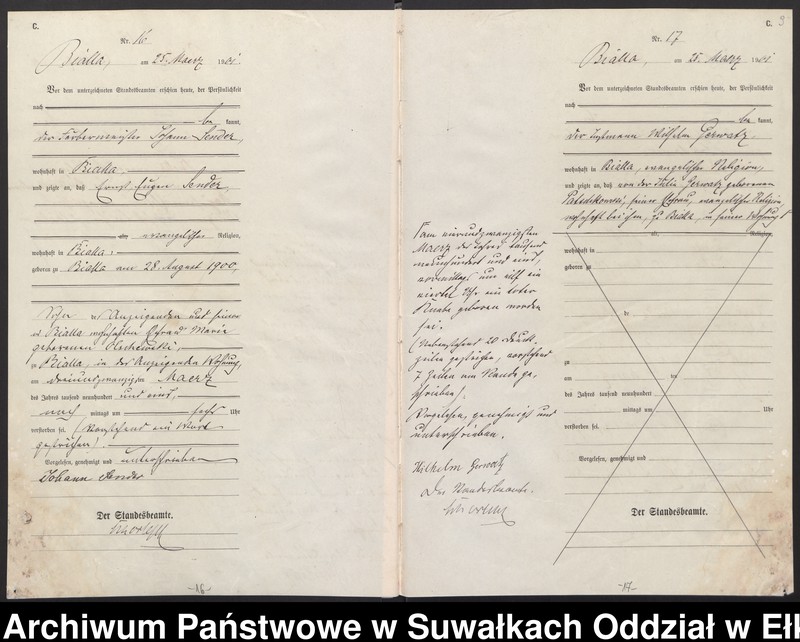 C.
Nr. 16
Bialla, am 25. Maerz 1901.
Vor dem unterzeichneten Standesbeamten erschien heute, der Persönlichkeit
nach
be kannt,
der Färbermeister Johann Sender,
wohnhaft in Bialla,
und zeigte an, daß Ernst Eugen Sender,
evangelischer Religion,
wohnhaft in Bialla,
geboren zu Bialla am 28. August 1900,
Sohn des Anzeigenden und seiner
zu Bialla wohnhaften Ehefrau Marie
geborenen
zu Bialla, in des Anzeigenden Wohnung,
am dreiundzwanzigsten Maerz
des Jahres tausend neunhundert und eins,
nach mittags um sechs Uhr
verstorben sei. (Vorstehend ein Wort
gestrichen).
Vorgelesen, genehmigt und unterschrieben
Johann Sender
Der Standesbeamte.
-16-
C. 9
Nr. 17
Bialla, am 25. Maerz 1901
Vor dem unterzeichneten Standesbeamten erschien heute, der Persönlichkeit
nach
be kannt,
der Instmann Wilhelm Gerwatz
wohnhaft in Bialla, evangelischer Religion,
und zeigte an, daß von der Julie Gerwatz geborenen
seiner Ehefrau, evangelischer Religion
wohnhaft bei ihm, zu Bialla, in seiner Wohnung
Religion,
wohnhaft in
geboren zu
zu
am ten
des Jahres tausend neunhundert
mittags um Uhr
verstorben sei.
Vorgelesen, genehmigt und
Der Standesbeamte.
am vierundzwanzigsten
Maerz des Jahres tausend
neunhundert und eins,
vormittags um elf ein
viertel Uhr ein toter
Knabe geboren worden
sei.
(Nebenstehend 20 Druck-
zeilen gestrichen, vorstehend
7 Zeilen am Rande ge-
schrieben).
Vorgelesen, genehmigt und
unterschrieben.
Wilhelm Gerwatz
Der Standesbeamte.
-17-
Archiwum Państwowe w Suwałkach Oddział w Eł